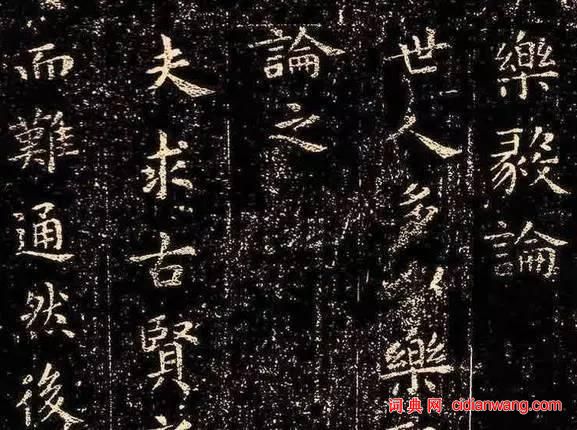 樂毅論
世人多以樂
論之
夫求古賢
而難通然後
词典网 cidianwang.com